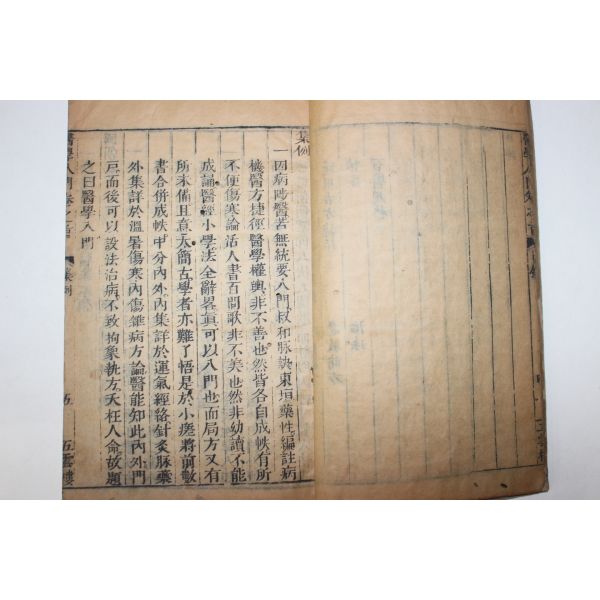 醫學入門卷之首
集例
一因病陟醫苦無統要入門叔和脉訣東垣藥性編註病
機醫方捷徑醫學權輿非不善也然皆各自成帙有所
不便傷寒論活人書百問歌非不美也然非幼讀不能
成誦醫經小學法全辭畧眞可以入門也而局方又有
所未備且意太簡古學者亦難了悟是於小瘥將前數
書合併成帙中分內外內集詳於運氣經絡針灸脉藥
外集詳於溫暑傷寒內傷雜病方論醫能知此內外門
戶而後可以設法治病不致拘象執方夭枉人命故題
之曰醫學入門
醫學入門卷之首 集例 五雲樓